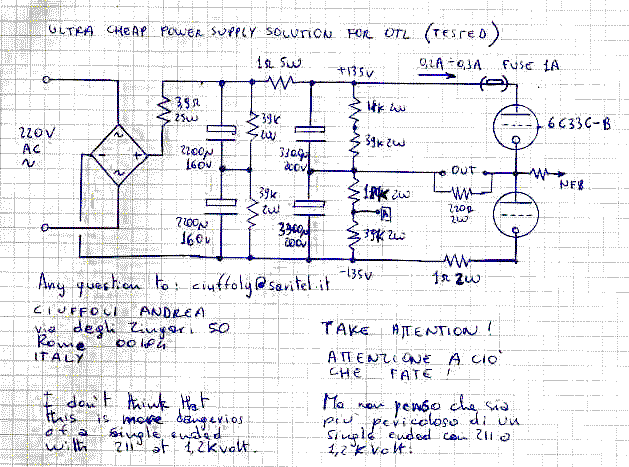 ULTRA CHEAP POWER SUPPLY SOLUTION FOR OTL (TESTED)
1Ω 5W
+135V
0,2A ÷ 0,3A FUSE 1A
39Ω
25W
39K
2W
39K 2W
6C33C-B
220V
AC
~
2200µ
160V
3300µ
200V
OUT
NFB
220Ω
2W
39K
2W
2W
A
2200µ
160V
3300µ
200V
39K 2W
-135V
1Ω 2W
Any question to: ciuffoly@saritel.it
CIUFFOLI ANDREA
via degli Zingari 50
Rome 00184
ITALY
TAKE ATTENTION!
ATTENZIONE A CIO'
CHE FATE!
I don't think that
this is more dangerios
of a single ended
with 211 at 1,2Kvolt.
Ma non penso che sia
più pericoloso di un
single ended con 211 a
1,2Kvolt.